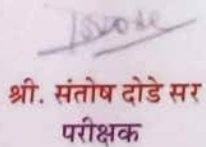 श्री. संतोष दोडे सर
परीक्षक